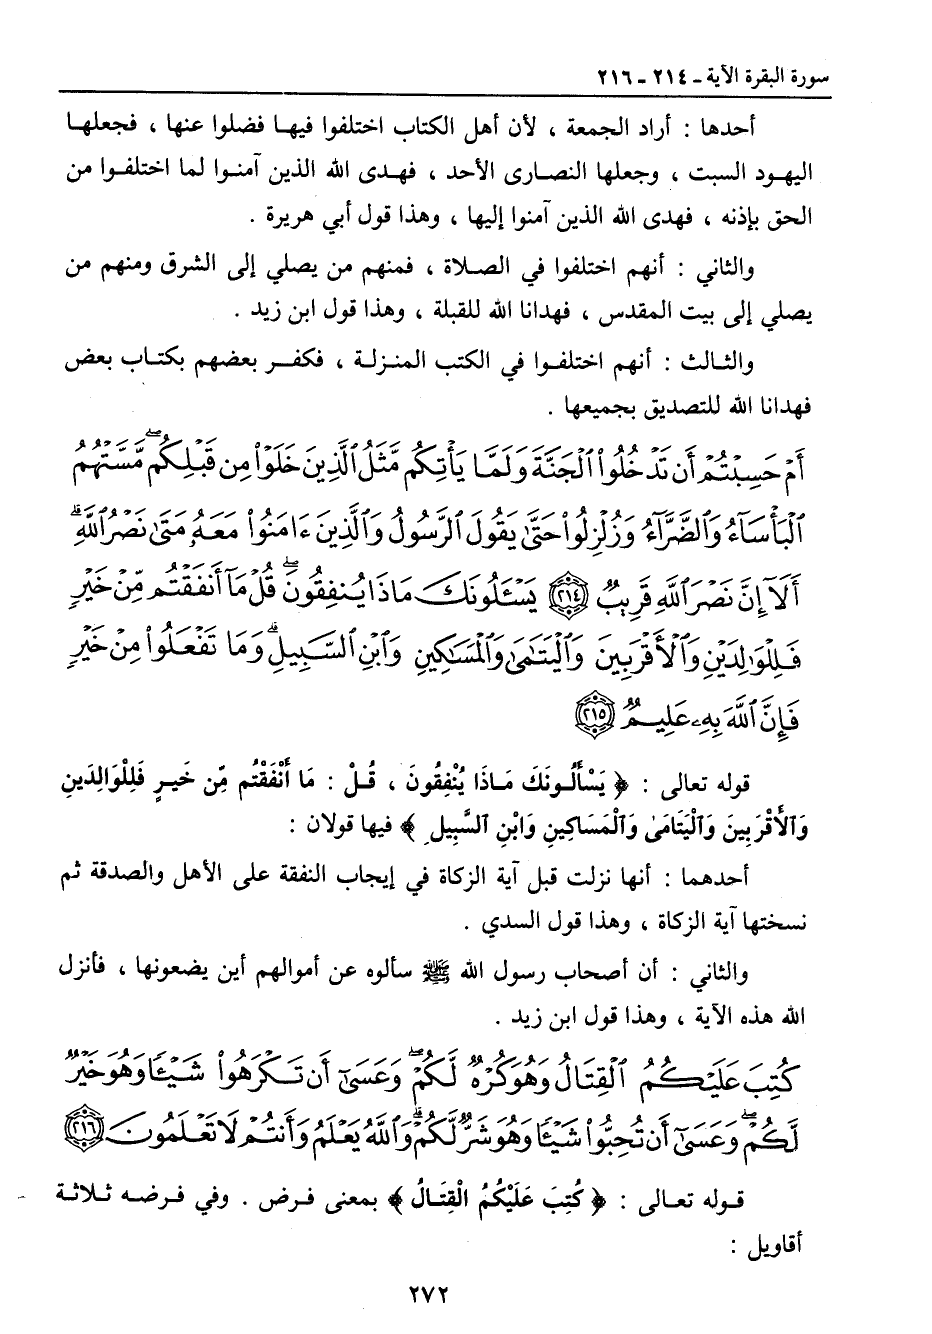 سورة البقرة الآية ـ ٢١٤ ـ ٢١٦
أحدها : أراد الجمعة ، لأن أهل الكتاب اختلفوا فيها فضلوا عنها ، فجعلها
اليهود السبت ، وجعلها النصارى الأحد ، فهدى الله الذين آمنوا لما اختلفوا من
الحق بإذنه ، فهدى الله الذين آمنوا إليها ، وهذا قول أبي هريرة .
والثاني : أنهم اختلفوا في الصلاة ، فمنهم من يصلي إلى الشرق ومنهم من
يصلي إلى بيت المقدس ، فهدانا الله للقبلة ، وهذا قول ابن زيد .
والثالث : أنهم اختلفوا في الكتب المنزلة ، فكفر بعضهم بكتاب بعض
فهدانا الله للتصديق بجميعها .
أَمْ حَسِبْتُمْ أَن تَدْخُلُوا۟ ٱلْجَنَّةَ وَلَمَّا يَأْتِكُم مَّثَلُ ٱلَّذِينَ خَلَوْا۟ مِن قَبْلِكُم ۖ مَّسَّتْهُمُ
ٱلْبَأْسَآءُ وَٱلضَّرَّآءُ وَزُلْزِلُوا۟ حَتَّىٰ يَقُولَ ٱلرَّسُولُ وَٱلَّذِينَ ءَامَنُوا۟ مَعَهُۥ مَتَىٰ نَصْرُ ٱللَّهِ ۗ
أَلَآ إِنَّ نَصْرَ ٱللَّهِ قَرِيبٌ ﴿٢١٤﴾ يَسْـَٔلُونَكَ مَاذَا يُنفِقُونَ ۖ قُلْ مَآ أَنفَقْتُم مِّنْ خَيْرٍ
فَلِلْوَٰلِدَيْنِ وَٱلْأَقْرَبِينَ وَٱلْيَتَٰمَىٰ وَٱلْمَسَٰكِينِ وَٱبْنِ ٱلسَّبِيلِ ۗ وَمَا تَفْعَلُوا۟ مِنْ خَيْرٍ
فَإِنَّ ٱللَّهَ بِهِۦ عَلِيمٌ ﴿٢١٥﴾
قوله تعالى : ﴿ يَسْأَلُونَكَ مَاذَا يُنْفِقُونَ ، قُلْ : مَا أَنْفَقْتُم مِّن خَيرٍ فَلِلْوَالِدَينِ
وَالأَقْرَبِينَ وَالْيَتَامَىٰ وَالْمَسَاكِينِ وَابْنِ السَّبِيلِ ﴾ فيها قولان :
أحدهما : أنها نزلت قبل آية الزكاة في إيجاب النفقة على الأهل والصدقة ثم
نسختها آية الزكاة ، وهذا قول السدي .
والثاني : أن أصحاب رسول الله ﷺ سألوه عن أموالهم أين يضعونها ، فأنزل
الله هذه الآية ، وهذا قول ابن زيد .
كُتِبَ عَلَيْكُمُ ٱلْقِتَالُ وَهُوَ كُرْهٌ لَّكُمْ ۖ وَعَسَىٰٓ أَن تَكْرَهُوا۟ شَيْـًٔا وَهُوَ خَيْرٌ
لَّكُمْ ۖ وَعَسَىٰٓ أَن تُحِبُّوا۟ شَيْـًٔا وَهُوَ شَرٌّ لَّكُمْ ۗ وَٱللَّهُ يَعْلَمُ وَأَنتُمْ لَا تَعْلَمُونَ ﴿٢١٦﴾
قوله تعالى : ﴿ كُتِبَ عَلَيْكُمُ الْقِتَالُ ﴾ بمعنى فرض . وفي فرضه ثلاثة
أقاويل :
٢٧٢